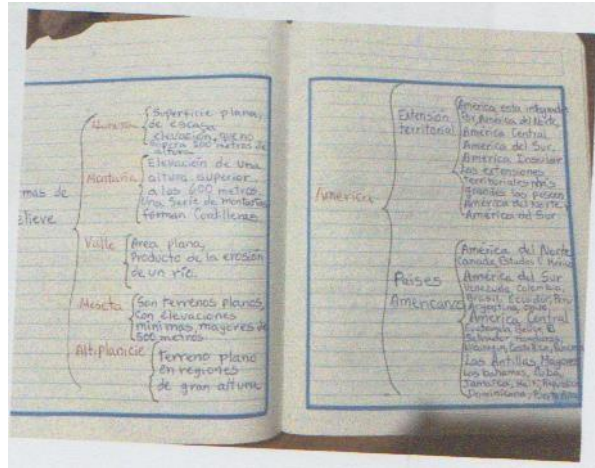 mas de
elieve
Llanura
Superficie plana,
de escasa
elevación, que no
supera 200 metros de
altura
Montaña
Elevación de una
altura superior
a los 600 metros.
Una serie de montañas
forman Cordilleras
Valle
Area plana,
Producto de la erosión
de un río.
Meseta
Son terrenos planos,
con elevaciones
mínimas, mayores de
500 metros
Altiplanicie
Terreno plano
en regiones
de gran altura
América
Extensión
territorial
América esta integrada
Por, América del Norte,
América Central
América del Sur,
América Insular
Las extensiones
territoriales más
grandes las poseen
América del Norte y
América del Sur
Países
Americanos
América del Norte
Canada, Estados U México
América del Sur
Venezuela, Colombia,
Brasil, Ecuador, Peru
Argentina,
América Central
Guatemala, Belice, El
Salvador, Honduras,
Nicaragua, Costa Rica, Panamá
Las Antillas Mayores
Las bahamas, Cuba,
Jamaica, Haití, República
Dominicana, Puerto Rico